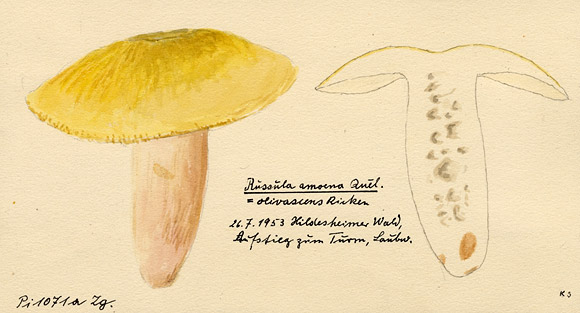 Russula amoena Quél.
= olivascens Ricken
26.7.1953 Hildesheimer Wald,
Aufstieg zum Turm, Laubw.
Pi1071a Zg.
K3